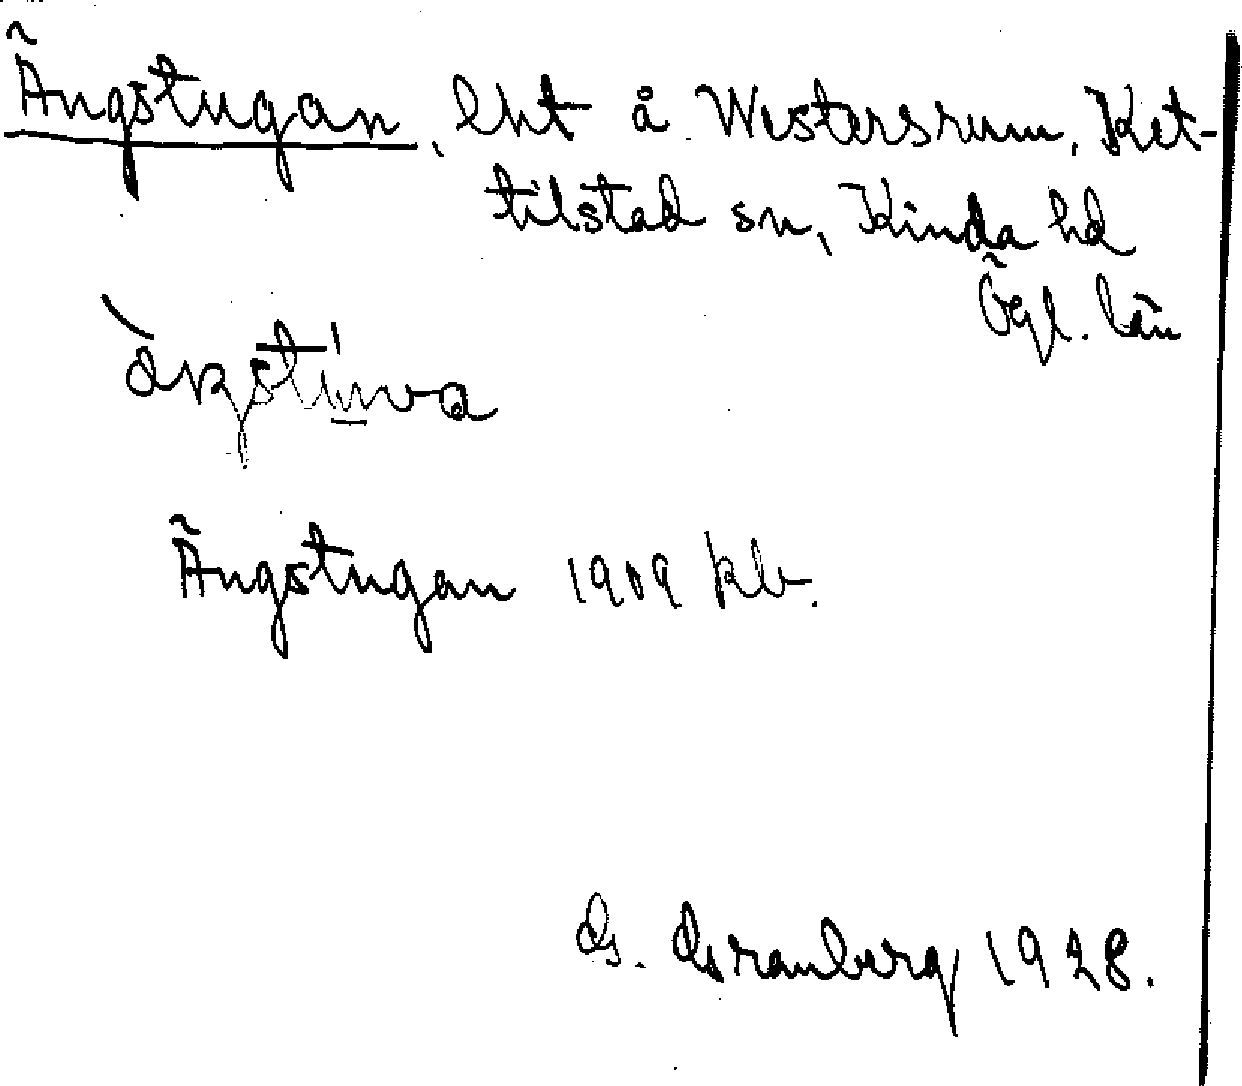 Ängstugan, lht å Westersrum, Ket-
tilstad sn, Kinda hd
Ögl. län
Ängstugan 1909 kb.
G. Granberg 1928.